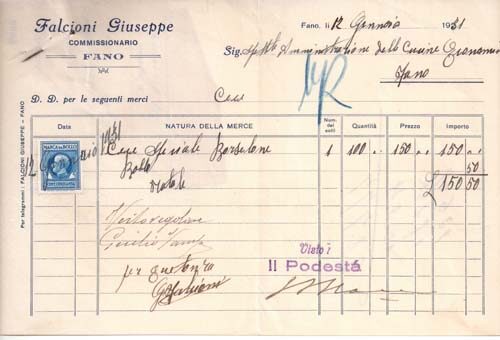 Falcioni Giuseppe
COMMISSIONARIO
FANO
Fano, li 12 Gennaio 1931
Sig. Spett.le Amministrazione delle Cucine Economiche
Fano
D. D. per le seguenti merci Ceci
Per telegrammi: FALCIONI GIUSEPPE - FANO
Data NATURA DELLA MERCE Num. dei colli Quantità Prezzo Importo
MARCA DA BOLLO
CENT. CINQUANTA
12 1931
Ceci Speciale 1 100 150 150
Bollo 50
Totale £ 150 50
Visto:
Il Podestà
per quietanza
GFalcioni